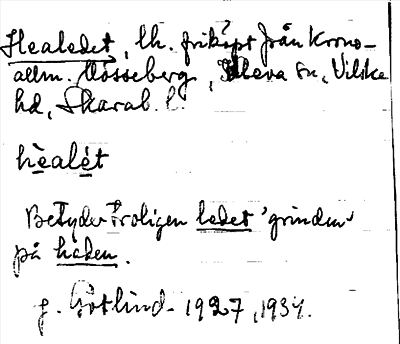 Healedet, lh. friköpt från krono-
allm. Mösseberg, Kleva sn, Vilske
hd, Skarab. l.
hèalét
Betyder troligen ledet 'grinden'
på heden.
J. Götlind 1927, 1934.